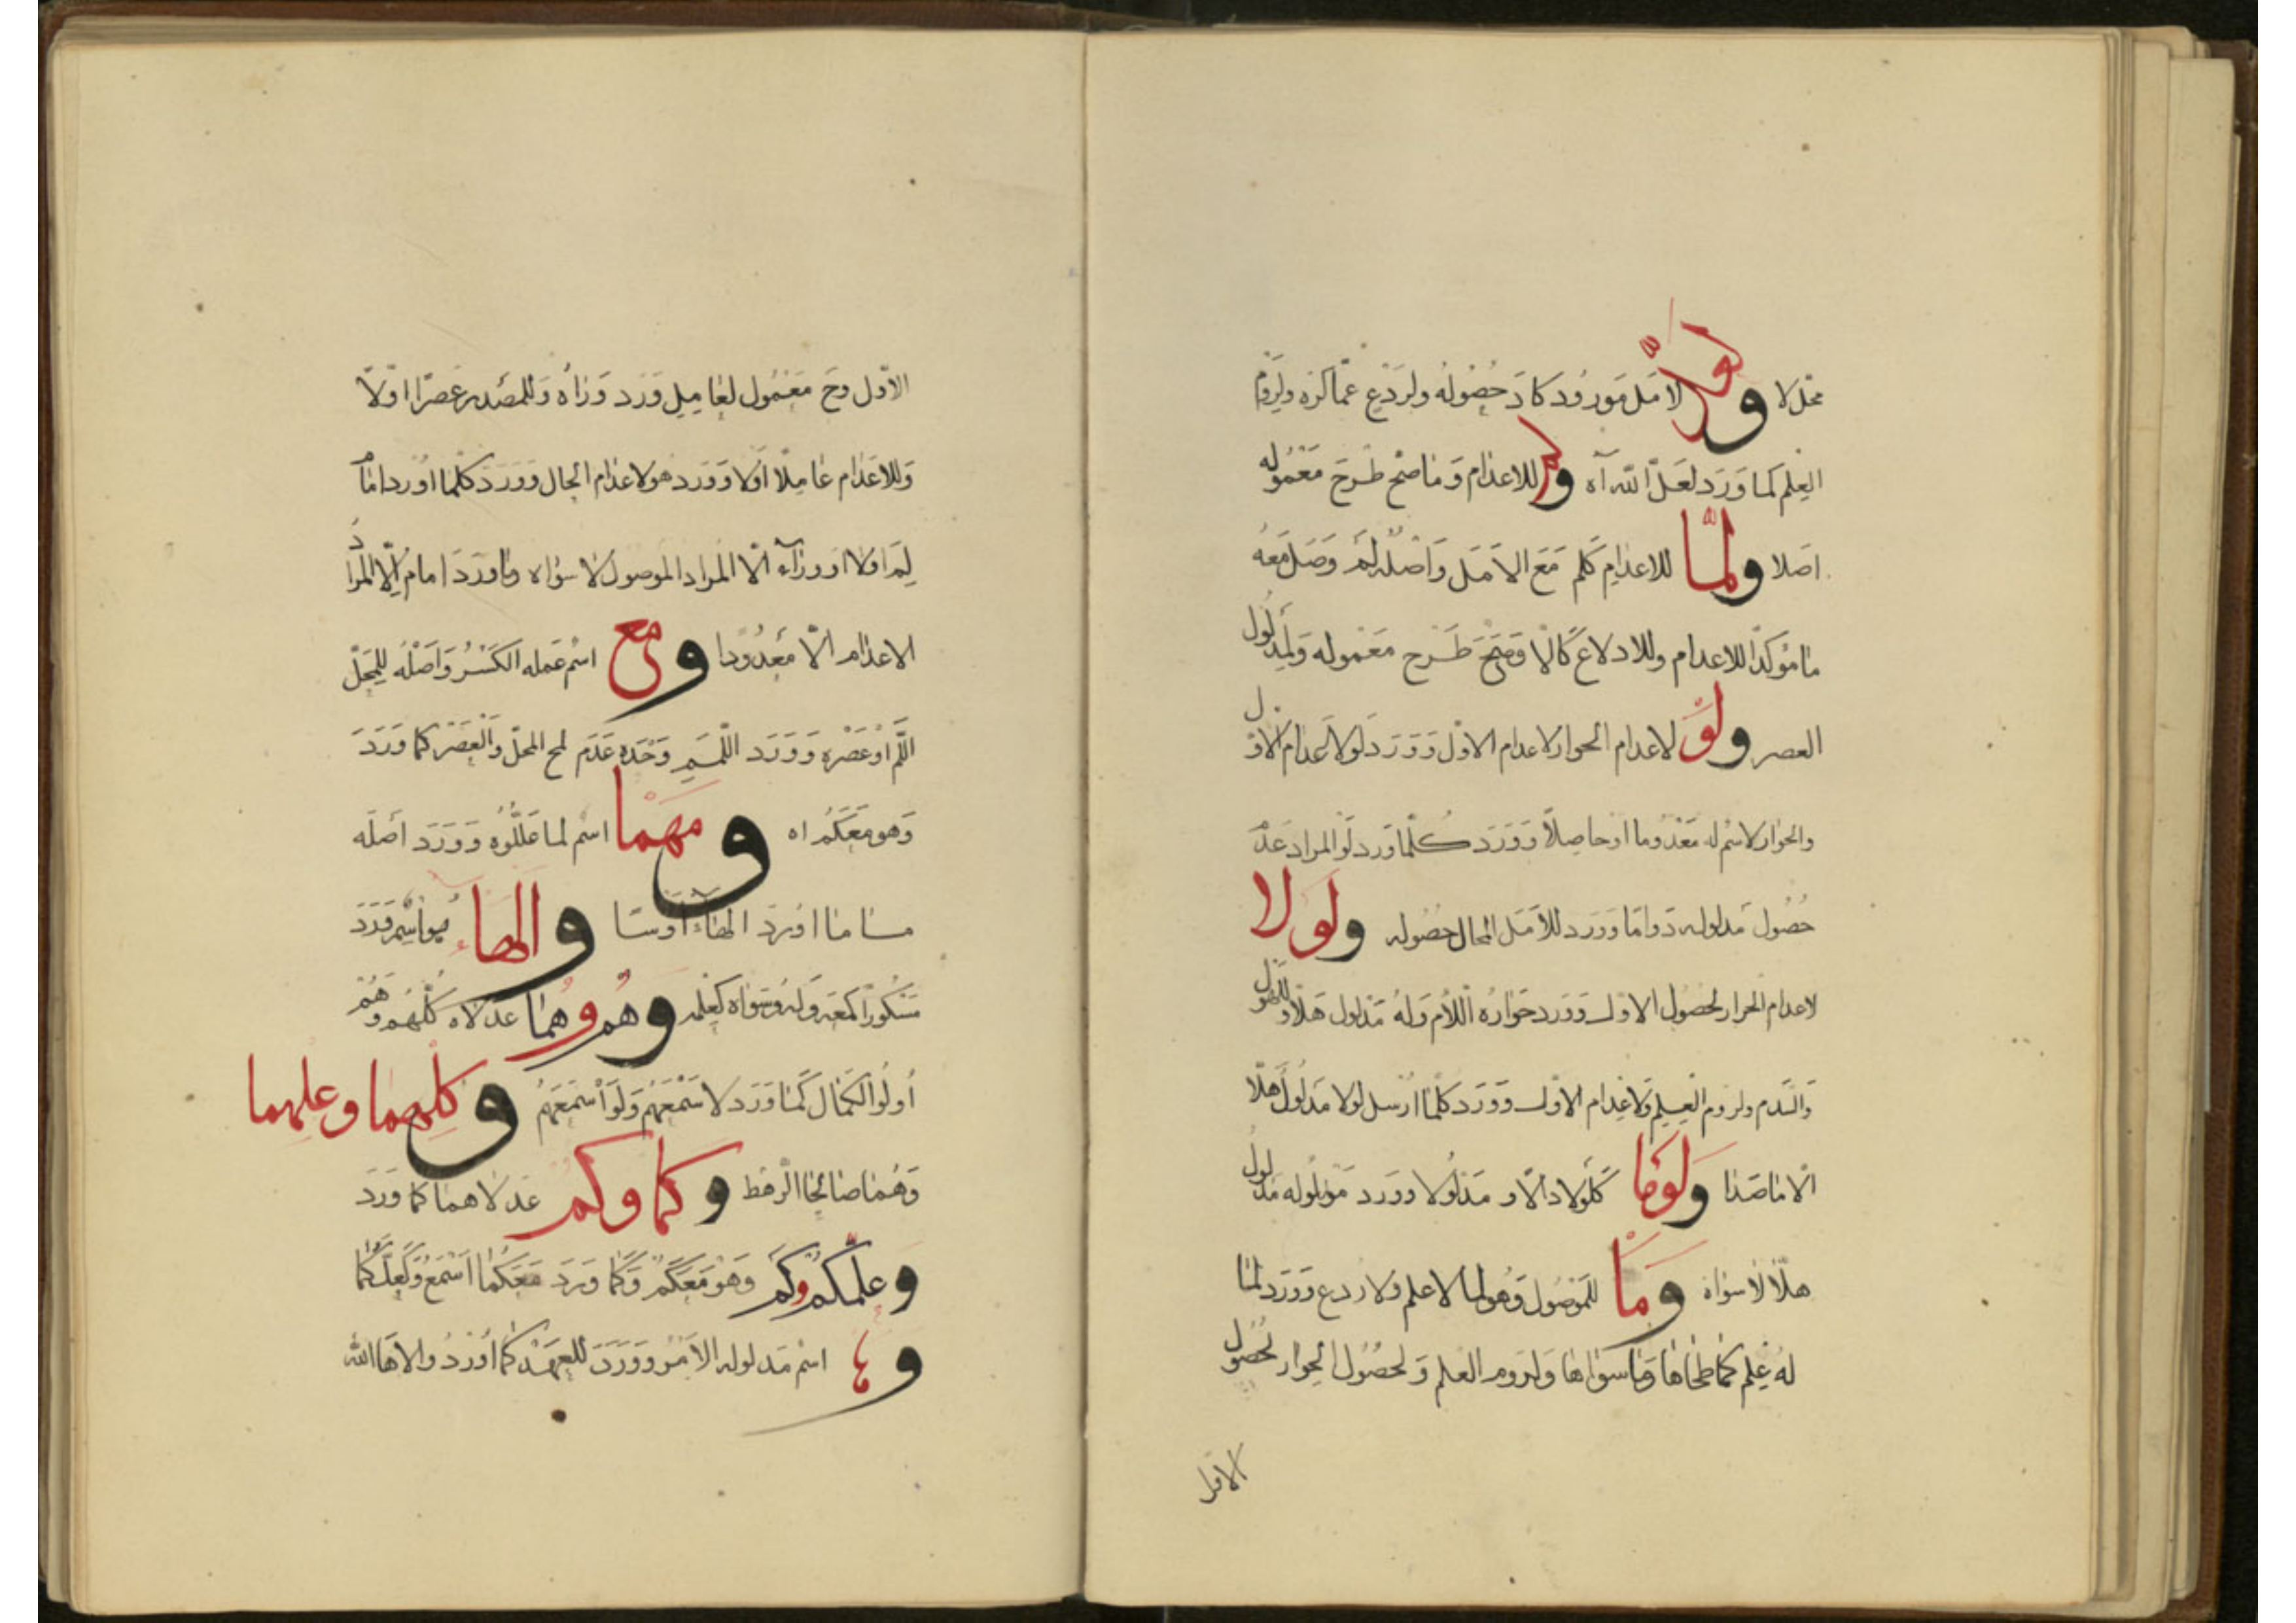 محلا ولعلّ لامل مورود كاد حصوله ولردع عمّا كره ولروم
العلم كما ورد لعلّ الله آه ولم للاعدام وما صحّ طرح معموله
اصلا ولمّا للاعدام كلم مع الامل واصله لم وصل معه
ما مؤكدا للاعدام وللاد لاع كالّا وصحّ طرح معموله ولمدلول
العصر ولو لاعدام الحوار لاعدام الاول وورد لولا لاعدام الاول
والحوار لاسم له معدوما او حاصلا وورد كلّما ورد لو المراد عدم
حصول مدلوله دواما وورد للامل المحال حصوله ولولا
لاعدام الحوار لحصول الاول وورد حواره اللام وله مدلول هلّا وللهول
والسدم ولروم العلم ولاعدام الاول وورد كلّما ارسل لولا مدلوله هلّا
الّا ما صدا ولوما كلولا دالّا و مدلولا وورد مدلوله مدلول
هلّا لا سواه وما للموصول وهو لما لا علم ولا ردع وورد لما
له علم كما طحاها وما سواها ولروم العلم ولحصول الحوار لحصول
الاوّل
الاوّل وحّ معمول لعامل ورد وراه وللمصدر عصرا اوّلا
وللاعدام عاملا اولا وورد هو لاعدام الحال وورد كلّما اورد امام
لم اولا او وراء الّا المراد الموصول لا سواه وما ورد امام الّا المراد
الاعدام الّا معدودا ومع اسم عمله الكسر واصله للمحلّ
اللّم او عصره وورد اللّم وحده عدم لمح المحلّ والعصر كما ورد
وهو معكم اه ومهما اسم لما علّلوه وورد اصله
ما ما اورد الهاء اوسا والهاء هو اسم ورد
مسكورا كمعه وله وسواه كعلم وهم وهما عدلاه كلّهم وهم
اولوا الكمال كما ورد لا سمعهم ولو اسمعهم وكلهما وعلهما
وهما صالحا الرهط وكما وكم عدلاهما كما ورد
وعلّكم وكم وهو معكم وكما ورد معكما اسمع ولعلّكما
وها اسم مدلوله الامر وورد للعهد كما اورد والاها الله